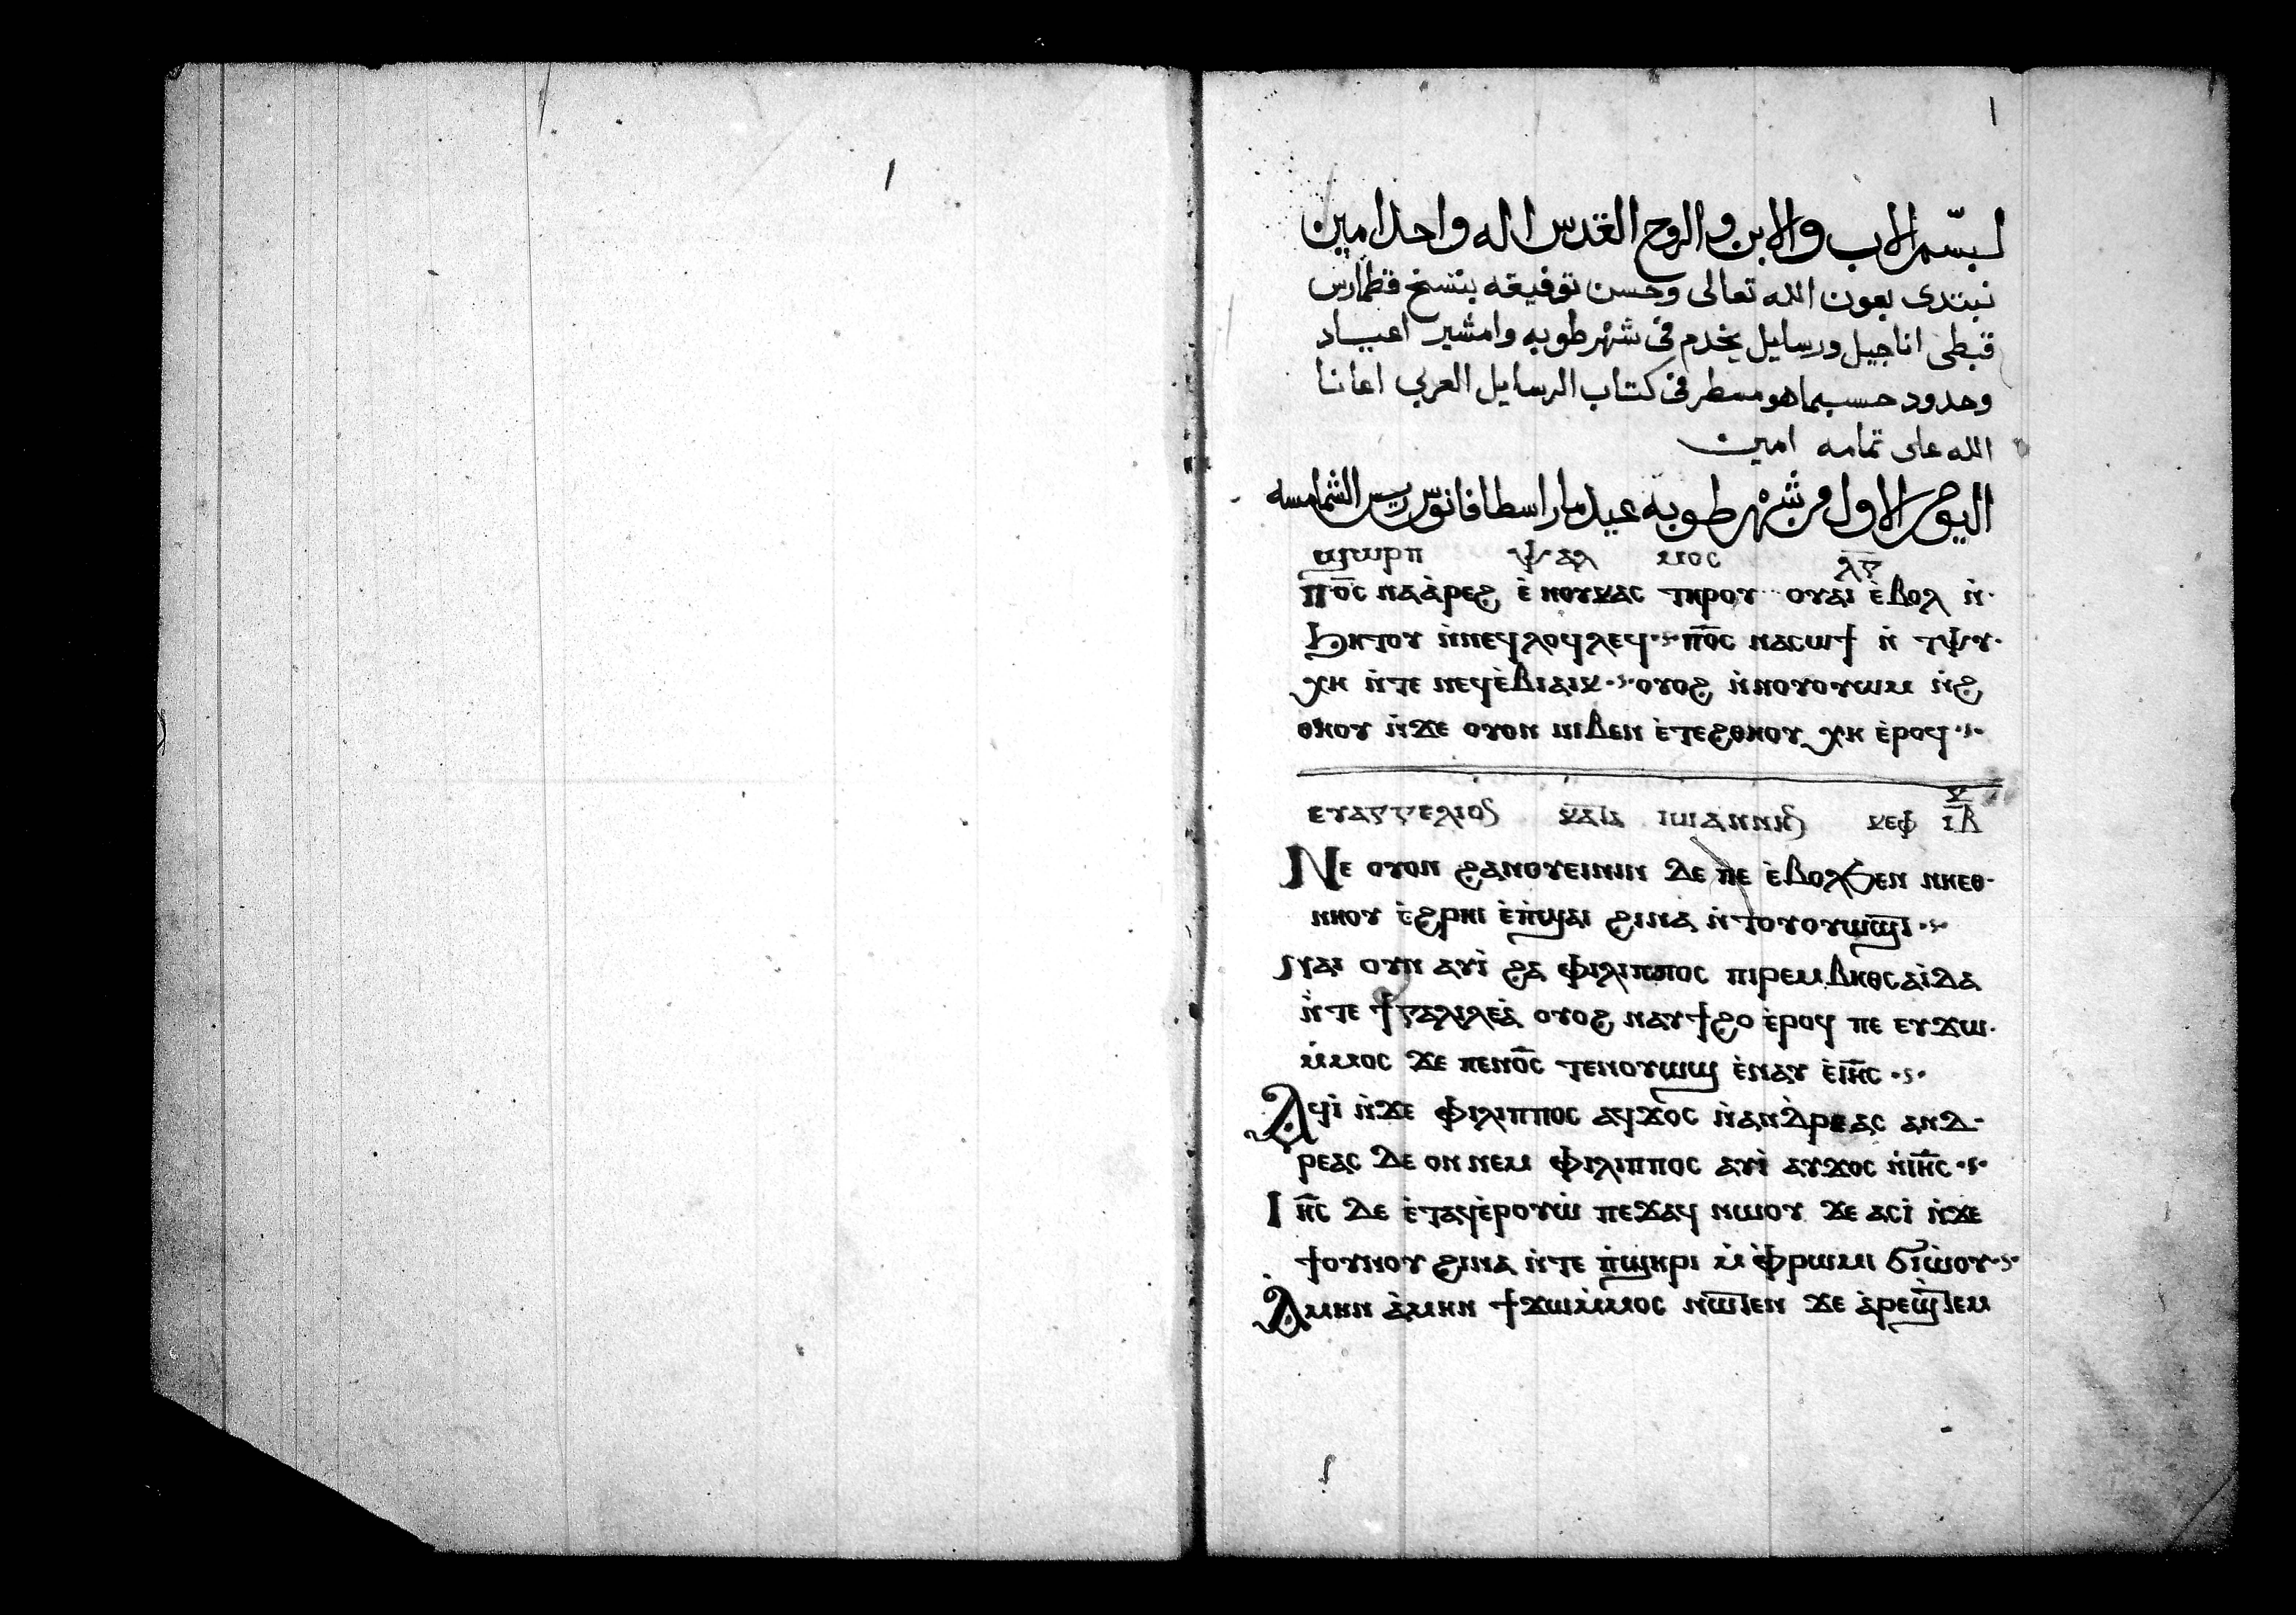 ١
١
لبسم الاب والابن والروح القدس اله واحد امين
نبتدى بعون الله تعالى وحسن توفيقه بنتسخ قطمارس
قبطى اناجيل ورسايل يخدم فى شهر طوبه وامشير اعياد
وحدود حسبما هو مسطر فى كتاب الرسايل العربي اعاننا
الله على تمامه امين
اليوم الاول من شهر طوبه عيد مار اسطافانوس ريس الشمامسه
ϣⲱⲣⲡ ⲯⲁⲗ ⲙⲟⲥ ⲗ̅ⲅ̅
ⲡⲟ̅ⲥ ⲛⲁⲁ̀ⲣⲉϩ ⲉ̀ ⲛⲟⲩⲕⲁⲥ ⲧⲏⲣⲟⲩ ⲟⲩⲁⲓ ⲉ̀ⲃⲟⲗ ⲛ̀·
ϧⲏⲧⲟⲩ ⲛ̀ⲛⲉϥⲗⲟϥⲗⲉϥ ⲡⲟ̅ⲥ ⲛⲁⲥⲱϯ ⲛ̀ ⲧⲯⲩ·
ⲭⲏ ⲛ̀ⲧⲉ ⲛⲉϥⲉ̀ⲃⲓⲁⲓⲕ ⲟⲩⲟϩ ⲛ̀ⲛⲟⲩⲟⲩⲱⲙ ⲛ̀ϩ
ⲑⲏⲟⲩ ⲛ̀ϫⲉ ⲟⲩⲟⲛ ⲛⲓⲃⲉⲛ ⲉ̀ⲧⲉϩⲑⲏⲟⲩ ⲭⲏ ⲉ̀ⲣⲟϥ
ⲉⲩⲁⲅⲅⲉⲗⲓⲟⲥ ⲕⲁⲧⲁ ⲓⲱⲁⲛⲛⲏⲥ ⲕⲉⲫ ⲓ̅ⲃ̅ ⲕ̅
Ⲛⲉ ⲟⲩⲟⲛ ϩⲁⲛⲟⲩⲉⲓⲛⲓⲛ ⲇⲉ ⲡⲉ ⲉ̀ⲃⲟⲗϧⲉⲛ ⲛⲏⲉⲑ·
ⲛⲏⲟⲩ ⲉ̀ϩⲣⲏⲓ ⲉ̀ⲡ̀ϣⲁⲓ ϩⲓⲛⲁ ⲛ̀ⲧⲟⲩⲟⲩⲱϣⲧ
ⲛⲁⲓ ⲟⲩⲛ ⲁⲩⲓ̀ ϩⲁ ⲫⲓⲗⲓⲡⲡⲟⲥ ⲡⲓⲣⲉⲙⲃⲏⲑⲥⲁⲓ̀ⲇⲁ
ⲛ̀ⲧⲉ ϯⲅⲁⲗⲓⲗⲉⲁ̀ ⲟⲩⲟϩ ⲛⲁⲩϯϩⲟ ⲉ̀ⲣⲟϥ ⲡⲉ ⲉⲩϫⲱ·
ⲙ̀ⲙⲟⲥ ϫⲉ ⲡⲉⲛⲟ̅ⲥ ⲧⲉⲛⲟⲩⲱϣ ⲉ̀ⲛⲁⲩ ⲉ̀ⲓⲏ̅ⲥ
Ⲁϥⲓ̀ ⲛ̀ϫⲉ ⲫⲓⲗⲓⲡⲡⲟⲥ ⲁϥϫⲟⲥ ⲛ̀ⲁⲛⲇⲣⲉⲁⲥ ⲁⲛⲇ-
ⲣⲉⲁⲥ ⲇⲉ ⲟⲛ ⲛⲉⲙ ⲫⲓⲗⲓⲡⲡⲟⲥ ⲁⲩⲓ̀ ⲁⲩϫⲟⲥ ⲛ̀ⲓⲏ̅ⲥ
Ⲓⲏ̅ⲥ ⲇⲉ ⲉ̀ⲧⲁϥⲉ̀ⲣⲟⲩⲱ̀ ⲡⲉϫⲁϥ ⲛⲱⲟⲩ ϫⲉ ⲁⲥⲓ̀ ⲛ̀ϫⲉ
ϯⲟⲩⲛⲟⲩ ϩⲓⲛⲁ ⲛ̀ⲧⲉ ⲡ̀ϣⲏⲣⲓ ⲙ̀ ⲫ̀ⲣⲱⲙⲓ ϭⲓⲱ̀ⲟⲩ
Ⲁⲙⲏⲛ ⲁ̀ⲙⲏⲛ ϯϫⲱⲙ̀ⲙⲟⲥ ⲛⲱⲧⲉⲛ ϫⲉ ⲁ̀ⲣⲉϣⲧⲉⲙ